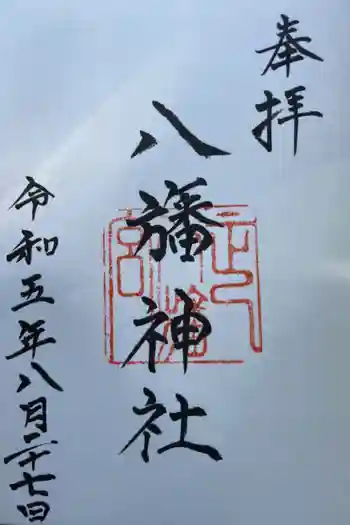 奉拝
八幡神社
令和五年八月二十七日